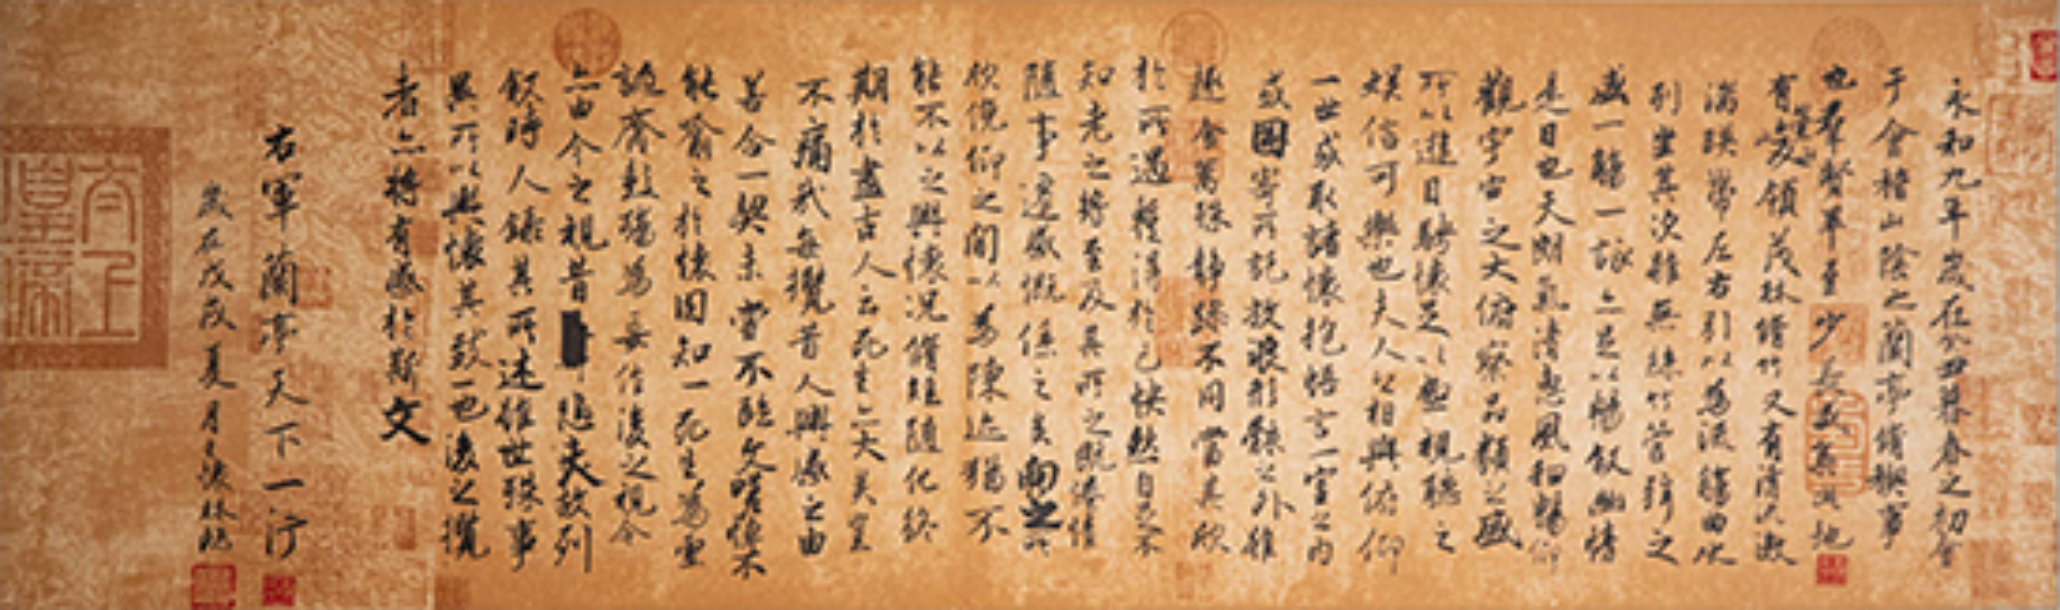 永和九年歲在癸丑暮春之初會
于會稽山陰之蘭亭脩禊事
也羣賢畢至少長咸集此地
有崇山峻領茂林脩竹又有清流激
湍暎帶左右引以為流觴曲水
列坐其次雖無絲竹管弦之
盛一觴一詠亦足以暢叙幽情
是日也天朗氣清惠風和暢仰
觀宇宙之大俯察品類之盛
所以遊目騁懷足以極視聽之
娛信可樂也夫人之相與俯仰
一世或取諸懷抱悟言一室之內
或因寄所託放浪形骸之外雖
趣舍萬殊靜躁不同當其欣
於所遇暫得於己怏然自足不
知老之將至及其所之既惓情
隨事遷感慨係之矣向之所
欣俛仰之間以為陳迹猶不
能不以之興懷況脩短隨化終
期於盡古人云死生亦大矣豈
不痛哉每攬昔人興感之由
若合一契未嘗不臨文嗟悼不
能喻之於懷固知一死生為虛
誕齊彭殤為妄作後之視今
亦由今之視昔悲夫故列
叙時人錄其所述雖世殊事
異所以興懷其致一也後之攬
者亦將有感於斯文
右軍蘭亭天下一行
歲在戊戌夏月
太上皇帝